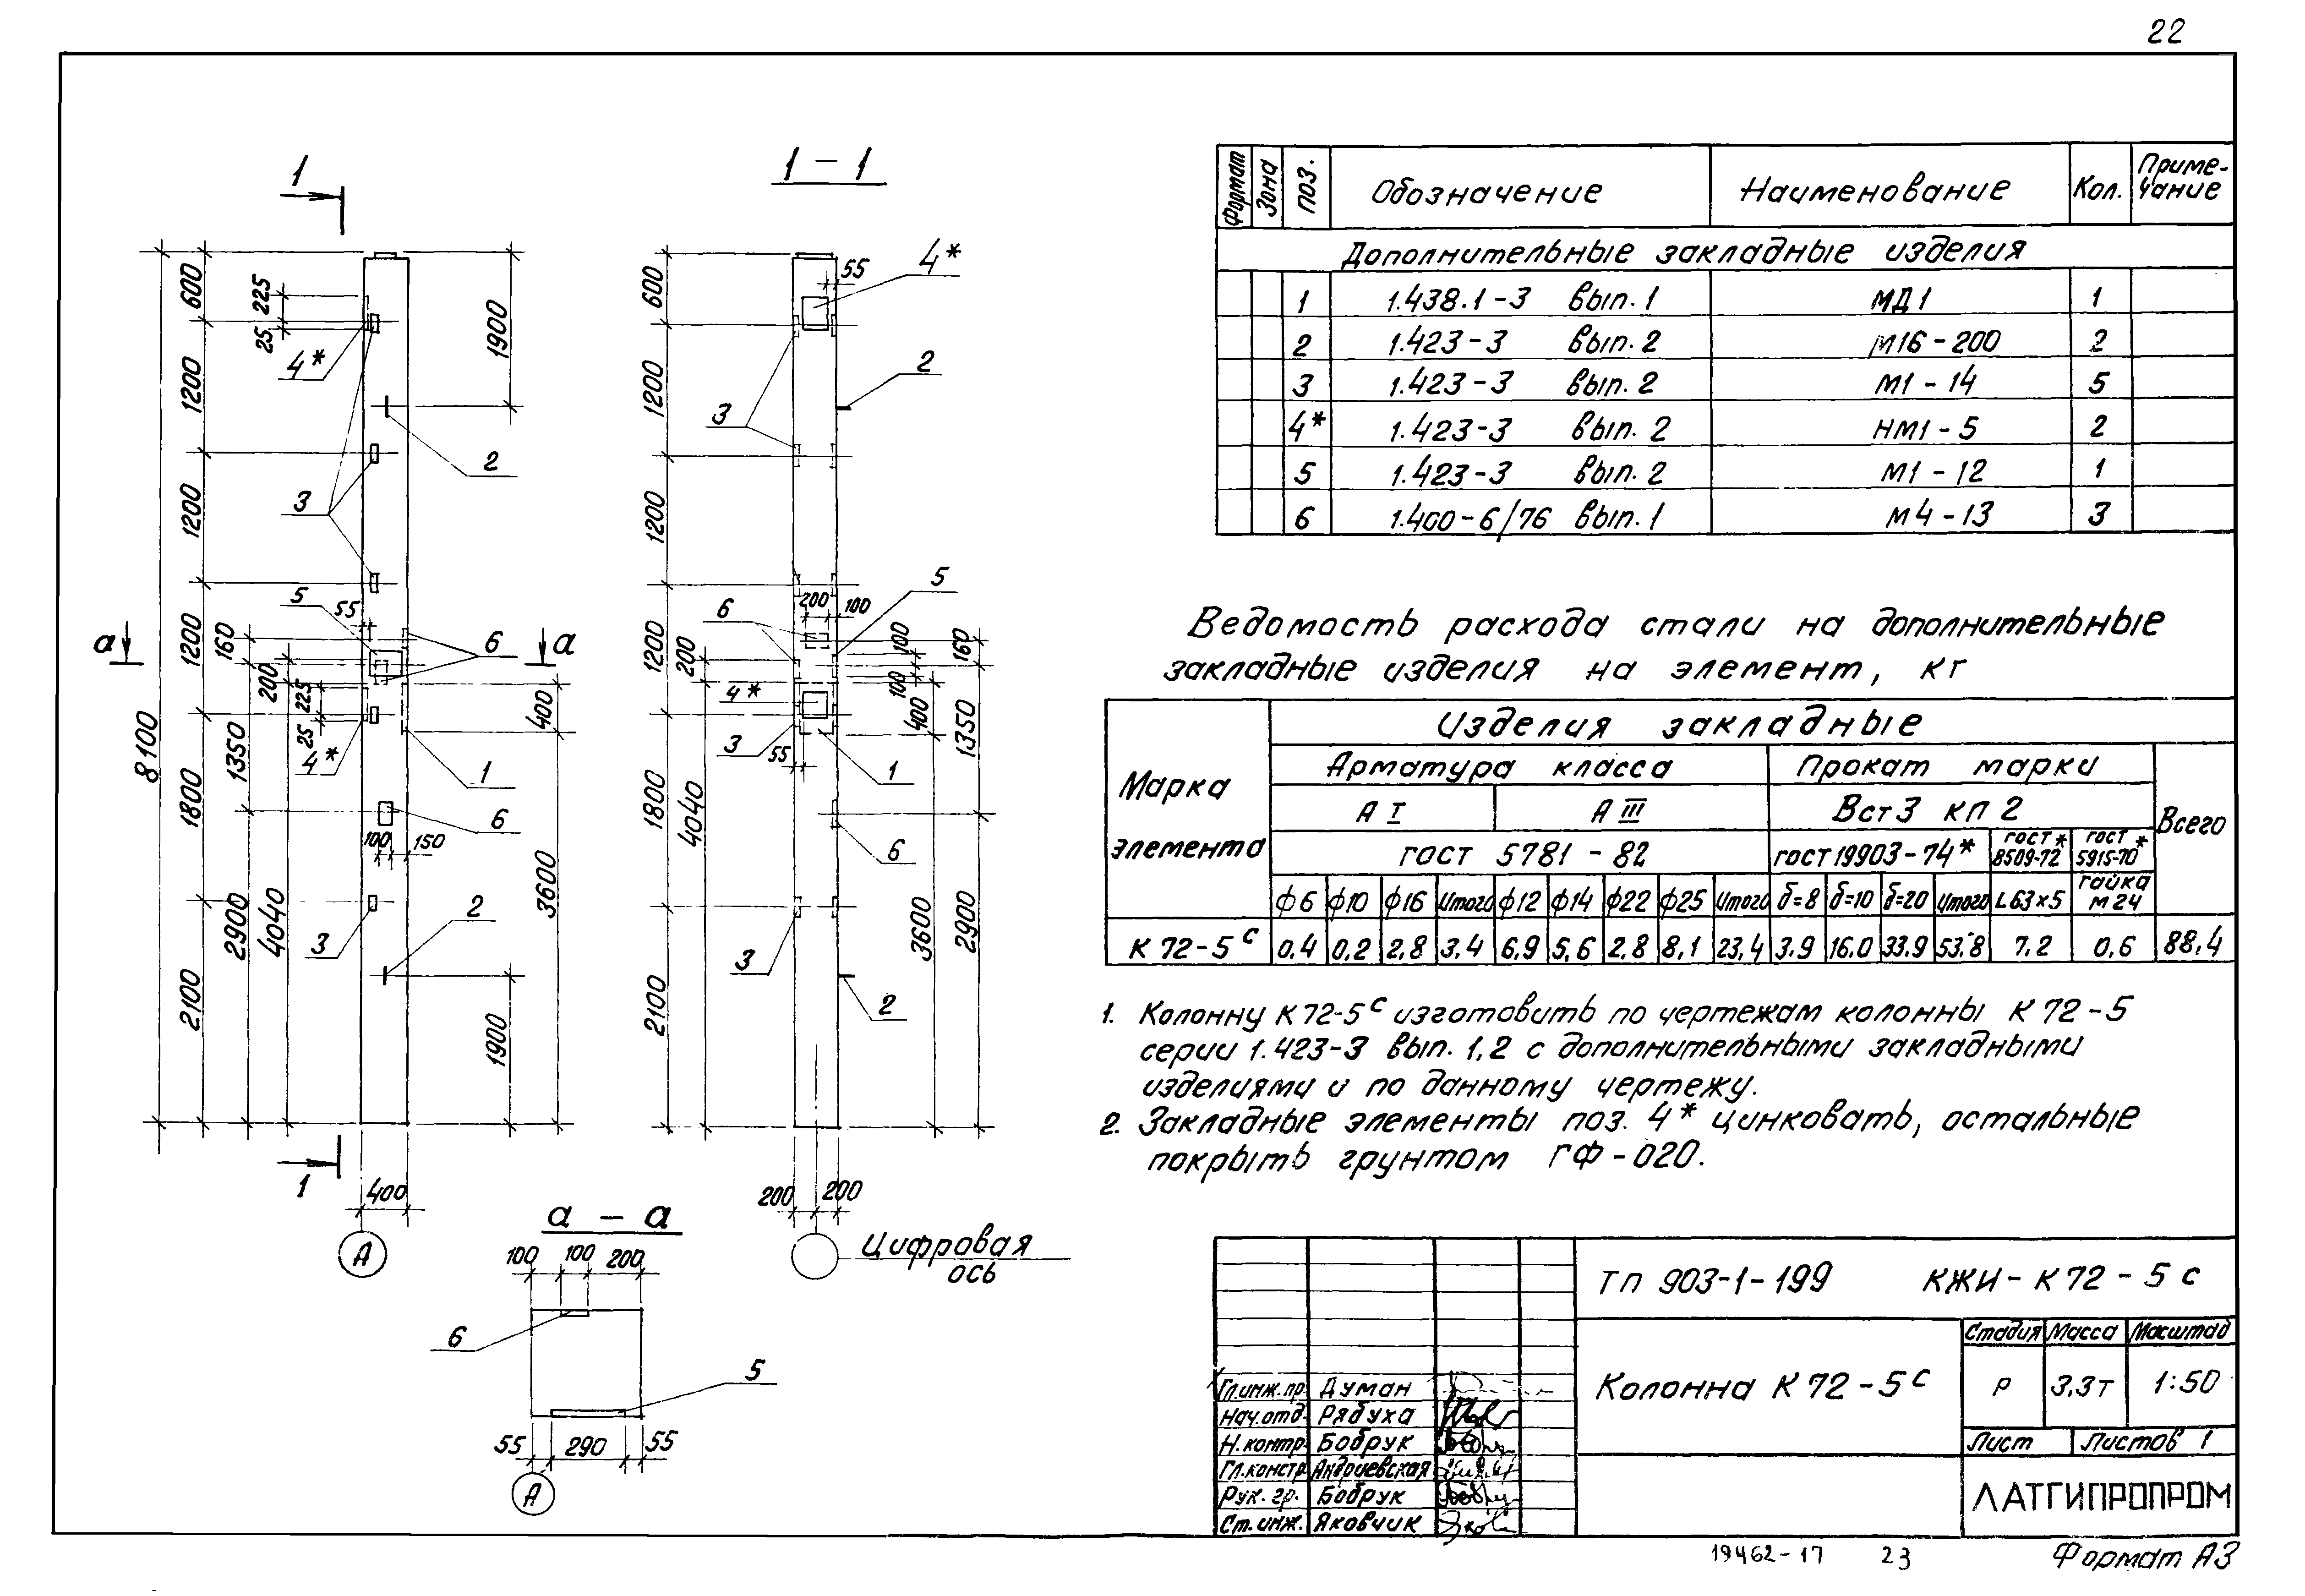 22
1
1 – 1
600
1200
1200
1200
1800
2100
8100
225
25
4*
1900
2
3
5
55
a
a
6
160
200
225
25
4*
400
1
1350
6
100
150
2900
4040
3600
3
2
1900
1
400
А
4*
55
600
3
2
1200
1200
5
200
100
6
100
160
1200
200
100
4*
400
1350
3
55
1
1800
4040
6
3600
2900
3
2
2100
200
200
Цифровая
ось
а – а
100
100
200
6
5
55
290
55
А
Формат Зона поз. Обозначение Наименование Кол. Приме-
чание
Дополнительные закладные изделия
1 1.438.1-3 вып. 1 МД1 1
2 1.423-3 вып. 2 М16-200 2
3 1.423-3 вып. 2 М1-14 5
4* 1.423-3 вып. 2 НМ1-5 2
5 1.423-3 вып. 2 М1-12 1
6 1.400-6/76 вып. 1 М4-13 3
Ведомость расхода стали на дополнительные
закладные изделия на элемент, кг
Марка
элемента
Изделия закладные
Арматура класса Прокат марки
А I А III Вст3 кп 2 Всего
гост 5781-82 гост 19903-74* гост* 8509-72 гост* 5915-70
ф6 ф10 ф16 Итого ф12 ф14 ф22 ф25 Итого δ=8 δ=10 δ=20 Итого L63×5 гайка М24
К 72-5с 0,4 0,2 2,8 3,4 6,9 5,6 2,8 8,1 23,4 3.9 16.0 33.9 53.8 7.2 0,6 88,4
1. Колонну К 72-5с изготовить по чертежам колонны К 72-5
серии 1.423-3 вып. 1,2 с дополнительными закладными
изделиями и по данному чертежу.
2. Закладные элементы поз. 4* цинковать, остальные
покрыть грунтом ГФ-020.
ТП 903-1-199 КЖИ-К72-5с
Колонна К 72-5с
Стадия Масса Масштаб
Р 3.3т 1:50
Лист Листов 1
ЛАТГИПРОПРОМ
Гл.инж.пр. Думан
Нач.отд. Рябуха
Н.контр. Бобрук
Гл.констр. Андриевская
Рук. гр. Бобрук
Ст.инж. Яковчик
19462-17 23
Формат А3